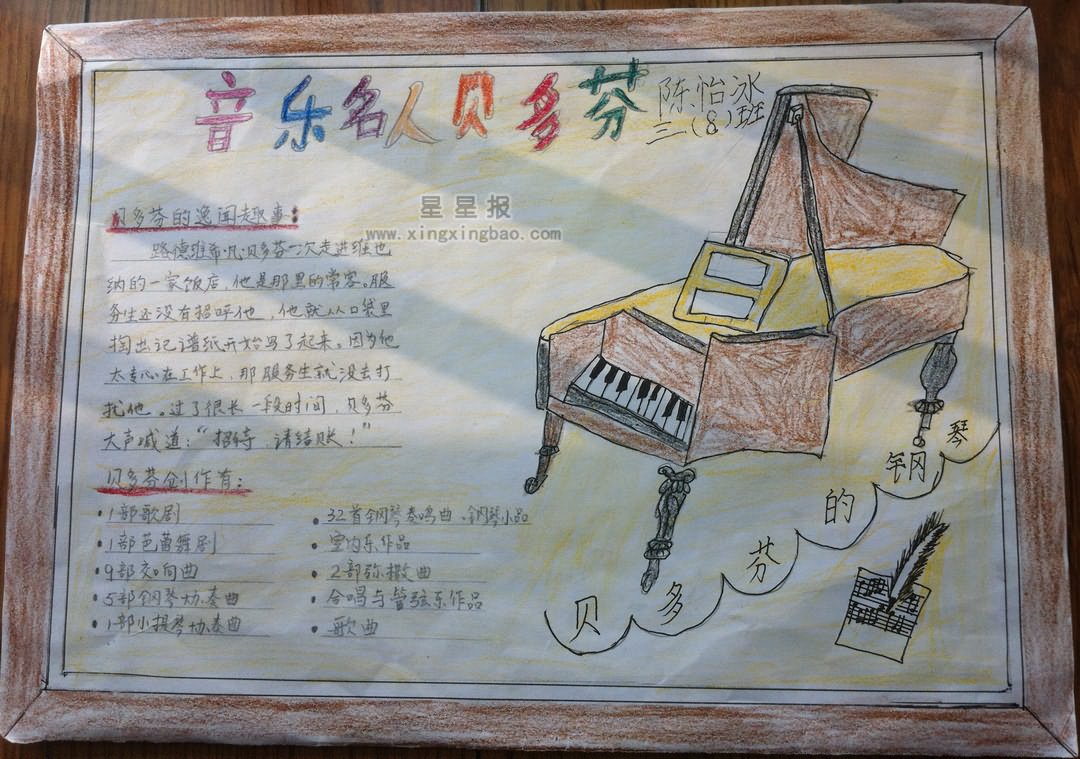 音乐名人贝多芬
陈怡冰
三(8)班
星星报
www.xingxingbao.com
贝多芬的逸闻趣事:
路德维希·凡·贝多芬一次走进维也
纳的一家饭店,他是那里的常客。服
务生还没有招呼他,他就从口袋里
掏出记谱纸开始写了起来。因为他
太专心在工作上,那服务生就没去打
扰他。过了很长一段时间,贝多芬
大声喊道:“招待,请结账!”
贝多芬创作有:
·1部歌剧
·1部芭蕾舞剧
·9部交响曲
·5部钢琴协奏曲
·1部小提琴协奏曲
·32首钢琴奏鸣曲、钢琴小品
·室内乐作品
·2部弥撒曲
·合唱与管弦乐作品
·歌曲
贝多芬的钢琴